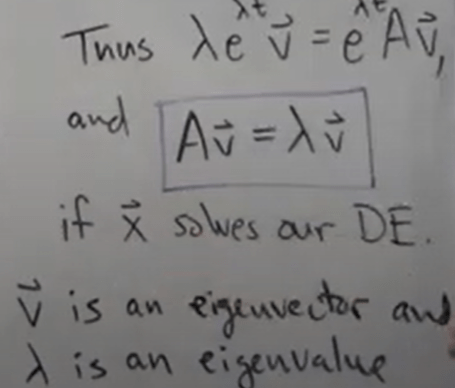 Thus λe^{λt} v⃗ = e^{λt} A v⃗,
and A v⃗ = λ v⃗
if x⃗ solves our DE.
v⃗ is an eigenvector and
λ is an eigenvalue